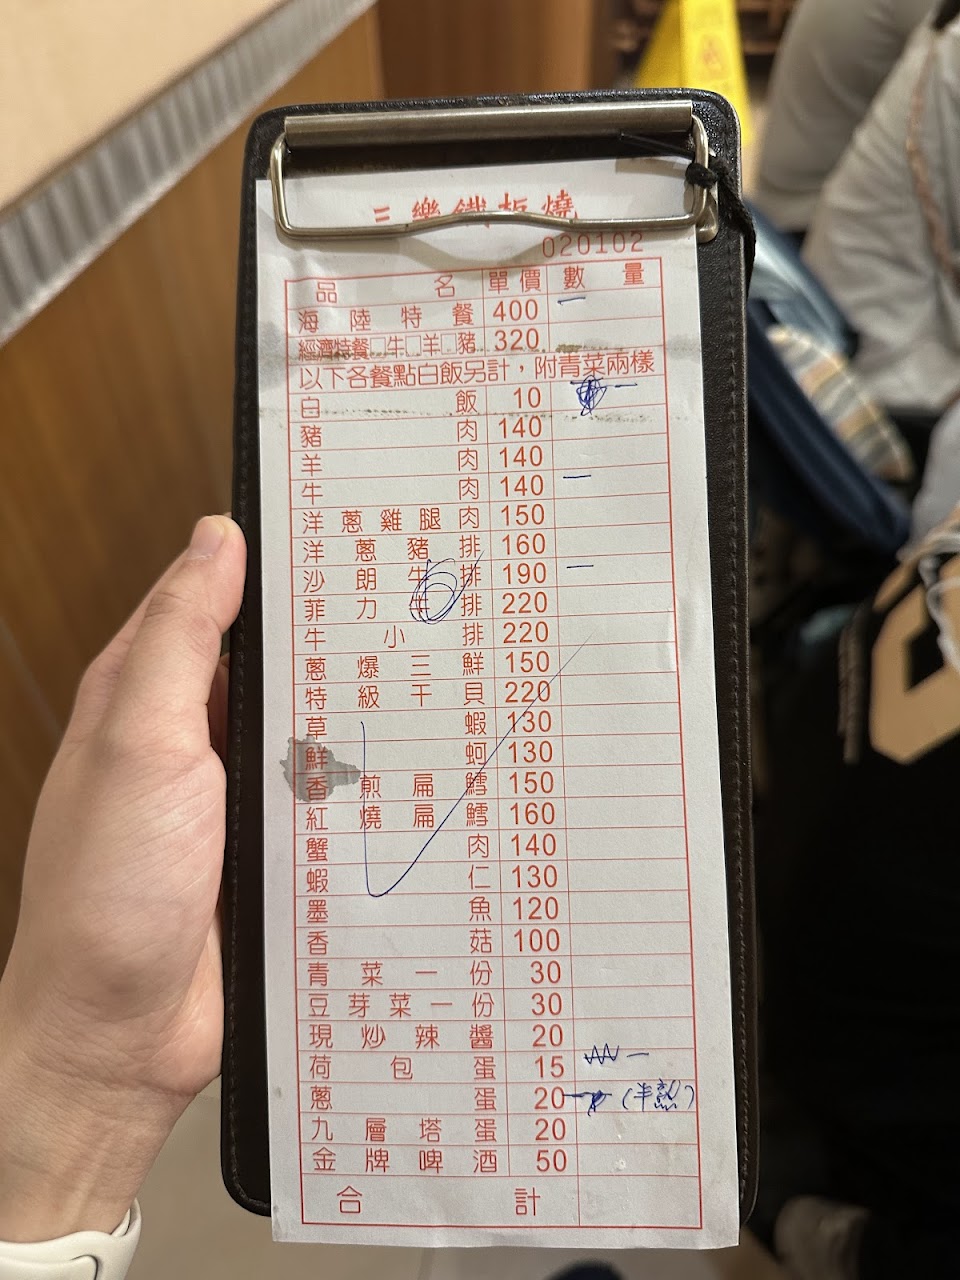 三樂鐵板燒
020102
品名 單價 數量
海陸特餐 400 一
經濟特餐□牛□羊□豬 320
以下各餐點白飯另計，附青菜兩樣
白飯 10 一
豬肉 140
羊肉 140
牛肉 140 一
洋蔥雞腿肉 150
洋蔥豬排 160
沙朗牛排 190 一
菲力牛排 220
牛小排 220
蔥爆三鮮 150
特級干貝 220
草蝦 130
鮮蚵 130
香煎扁鱈 150
紅燒扁鱈 160
蟹肉 140
蝦仁 130
墨魚 120
香菇 100
青菜一份 30
豆芽菜一份 30
現炒辣醬 20
荷包蛋 15 一
蔥蛋 20 (半熟)
九層塔蛋 20
金牌啤酒 50
合計